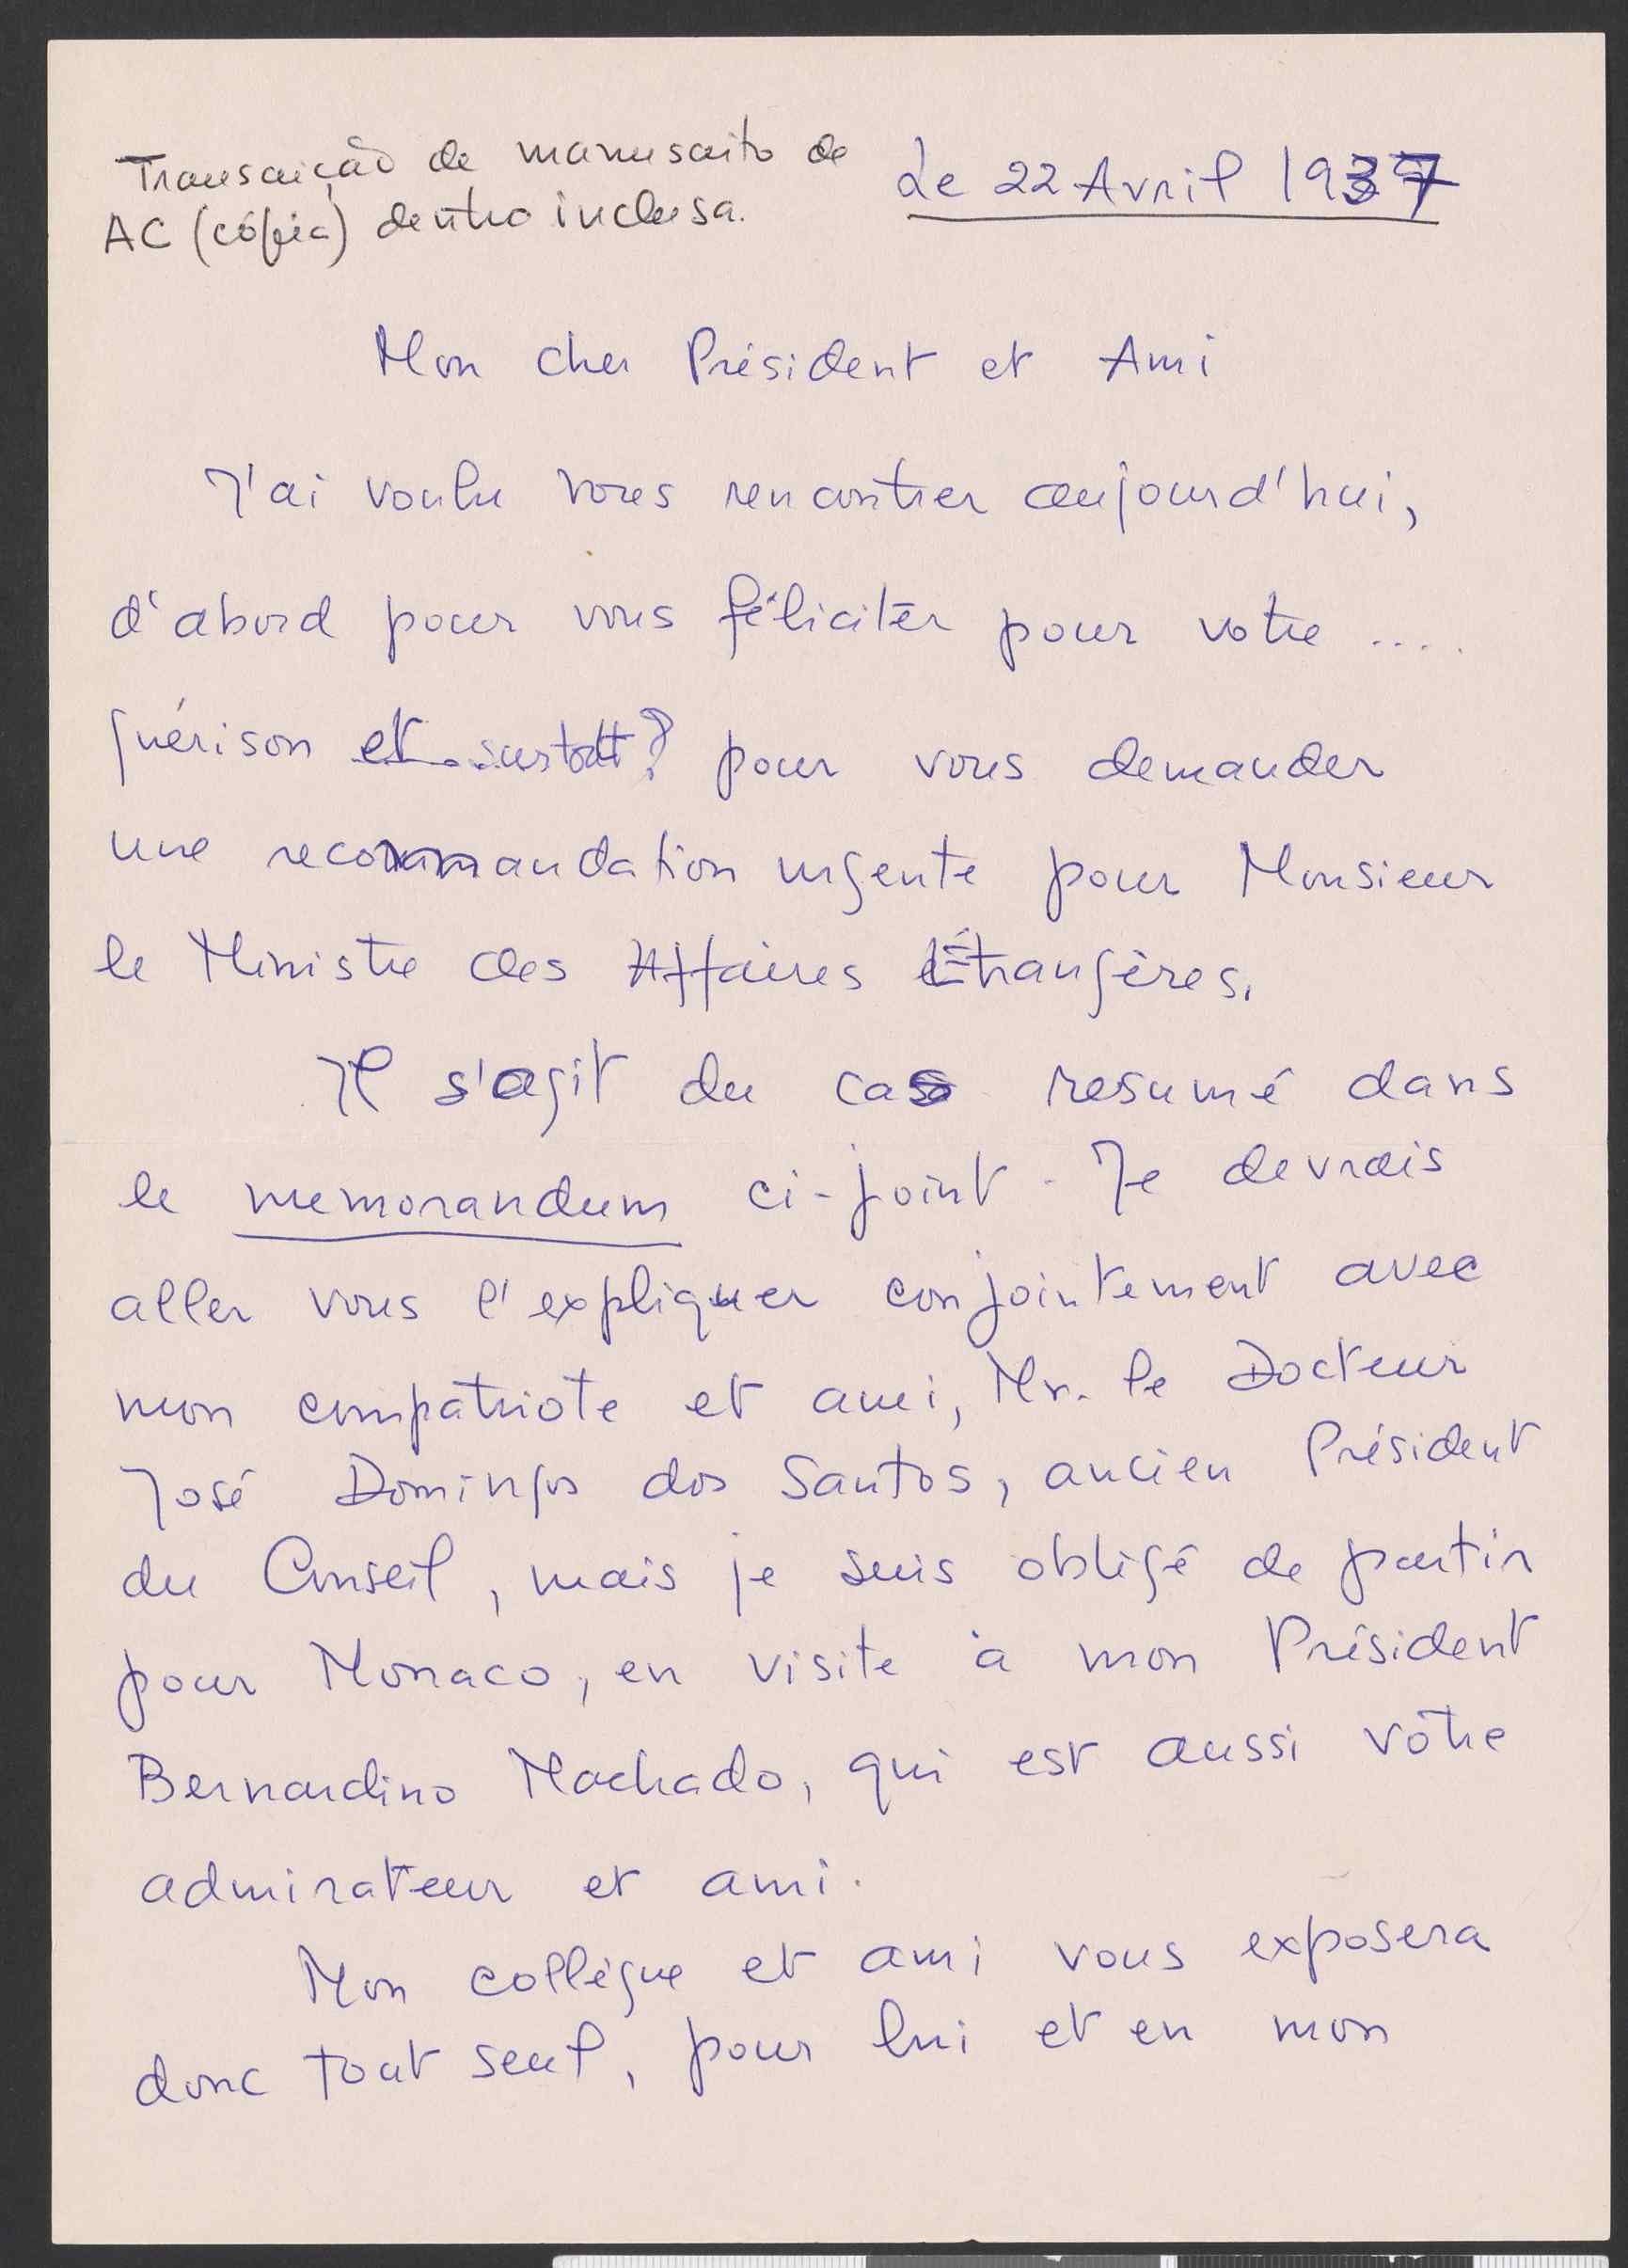 Transcrição de manuscrito de
AC (cópia) dentro inclusa.
Le 22 Avril 1937
Mon cher Président et Ami
J'ai voulu vous rencontrer aujourd'hui,
d'abord pour vous féliciter pour votre ....
guérison et surtout? pour vous demander
une recommandation urgente pour Monsieur
le Ministre des Affaires Étrangères.
Il s'agit du cas resumé dans
le memorandum ci-joint. Je devrais
aller vous l'expliquer conjointement avec
mon compatriote et ami, Mr. le Docteur
José Domingos dos Santos, ancien Président
du Conseil, mais je suis obligé de partir
pour Monaco, en visite à mon Président
Bernardino Machado, qui est aussi vôtre
admirateur et ami.
Mon collègue et ami vous exposera
donc tout seul, pour lui et en mon